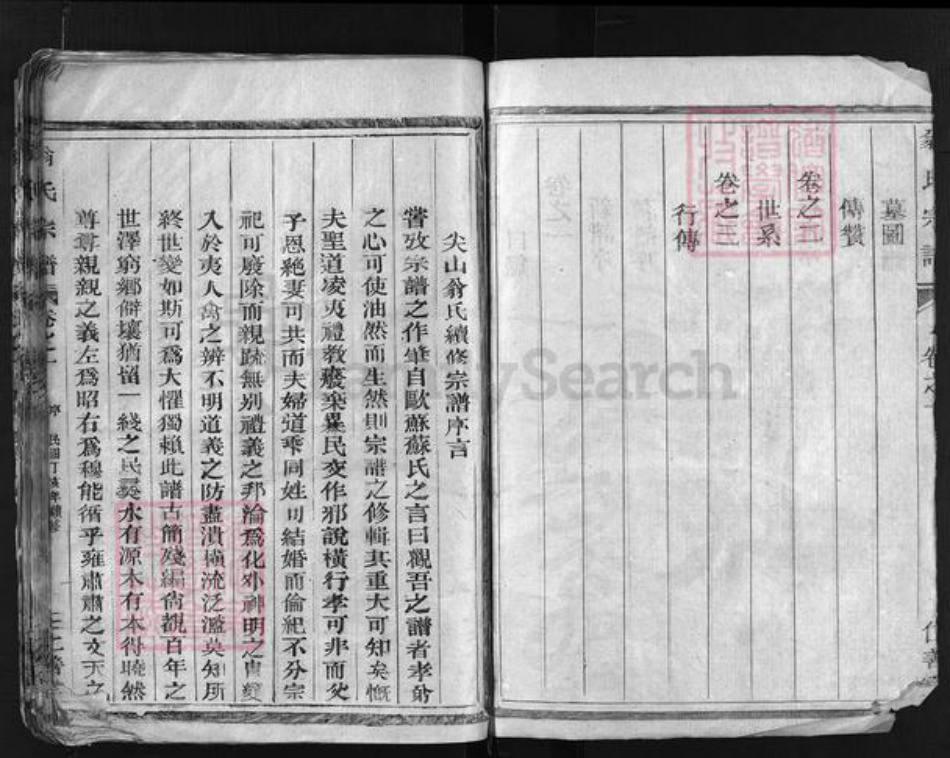 墓圖
傳贊
卷之二
世系
卷之三
行傳
尖山翁氏續修宗譜序言
嘗攷宗譜之作肇自歐蘇蘇氏之言曰觀吾之譜者孝弟
之心可使油然而生然則宗譜之修輯其重大可知矣慨
夫聖道凌夷禮教廢棄異民交作邪說橫行孝可非而父
子恩絶妻可共而夫婦道乖同姓可結婚而倫紀不分宗
祀可廢除而親疏無别禮義之邦淪爲化外神明之冑變
入於夷人禽之辨不明道義之防盡潰橫流泛濫莫知所
終世變如斯可爲大懼獨賴此譜古簡殘編尙覩百年之
世澤窮鄉僻壤猶留一綫之民彛水有源木有本得曉然
尊尊親親之義左爲昭右爲穆能循乎雍肅肅之文天立
氏宗譜
卷之一
序
民國丁亥年續修
FamilySearch